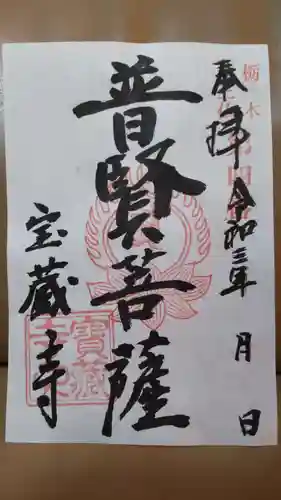 奉拝 令和三年 月 日
栃木
第四番
普賢菩薩
宝蔵寺